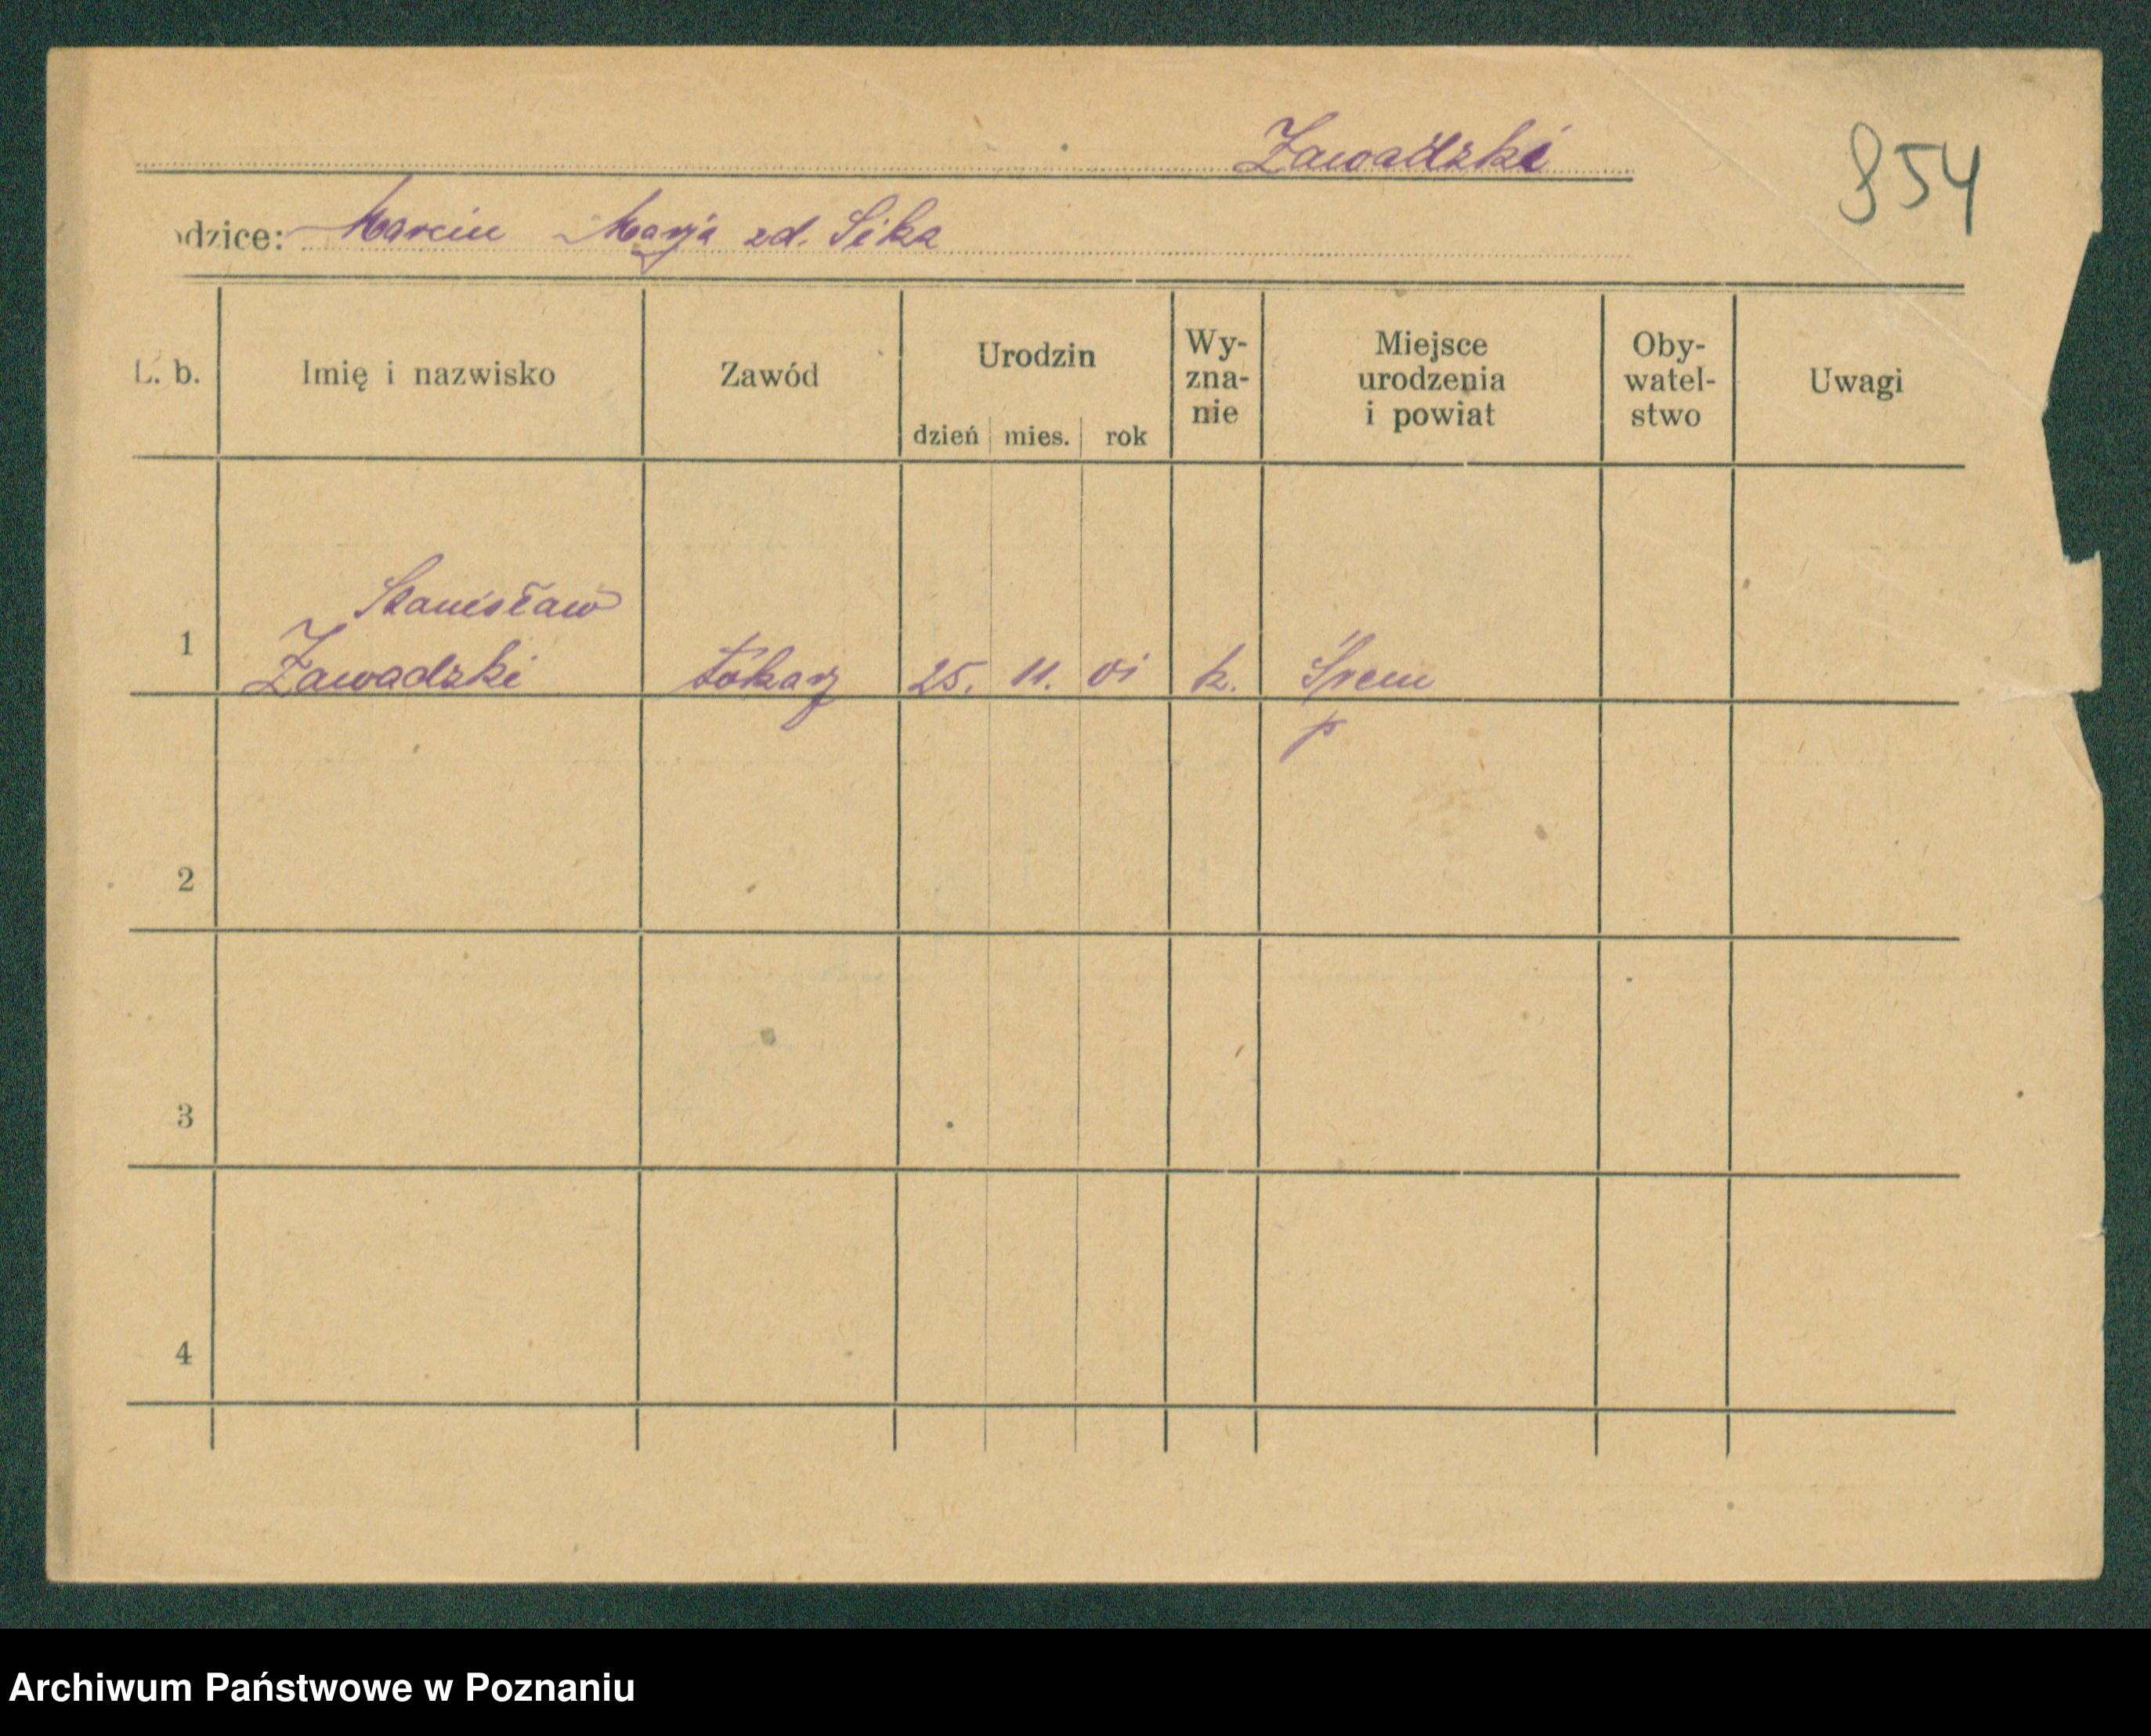 Zawadzki
854
odzice: Marcin Marja zd. Sika
L. b.
Imię i nazwisko
Zawód
Urodzin
dzień mies. rok
Wy-
zna-
nie
Miejsce
urodzenia
i powiat
Oby-
watel-
stwo
Uwagi
1
Stanisław
Zawadzki
tokarz
25. 11. 01
k.
Śrem
p
2
3
4
Archiwum Państwowe w Poznaniu